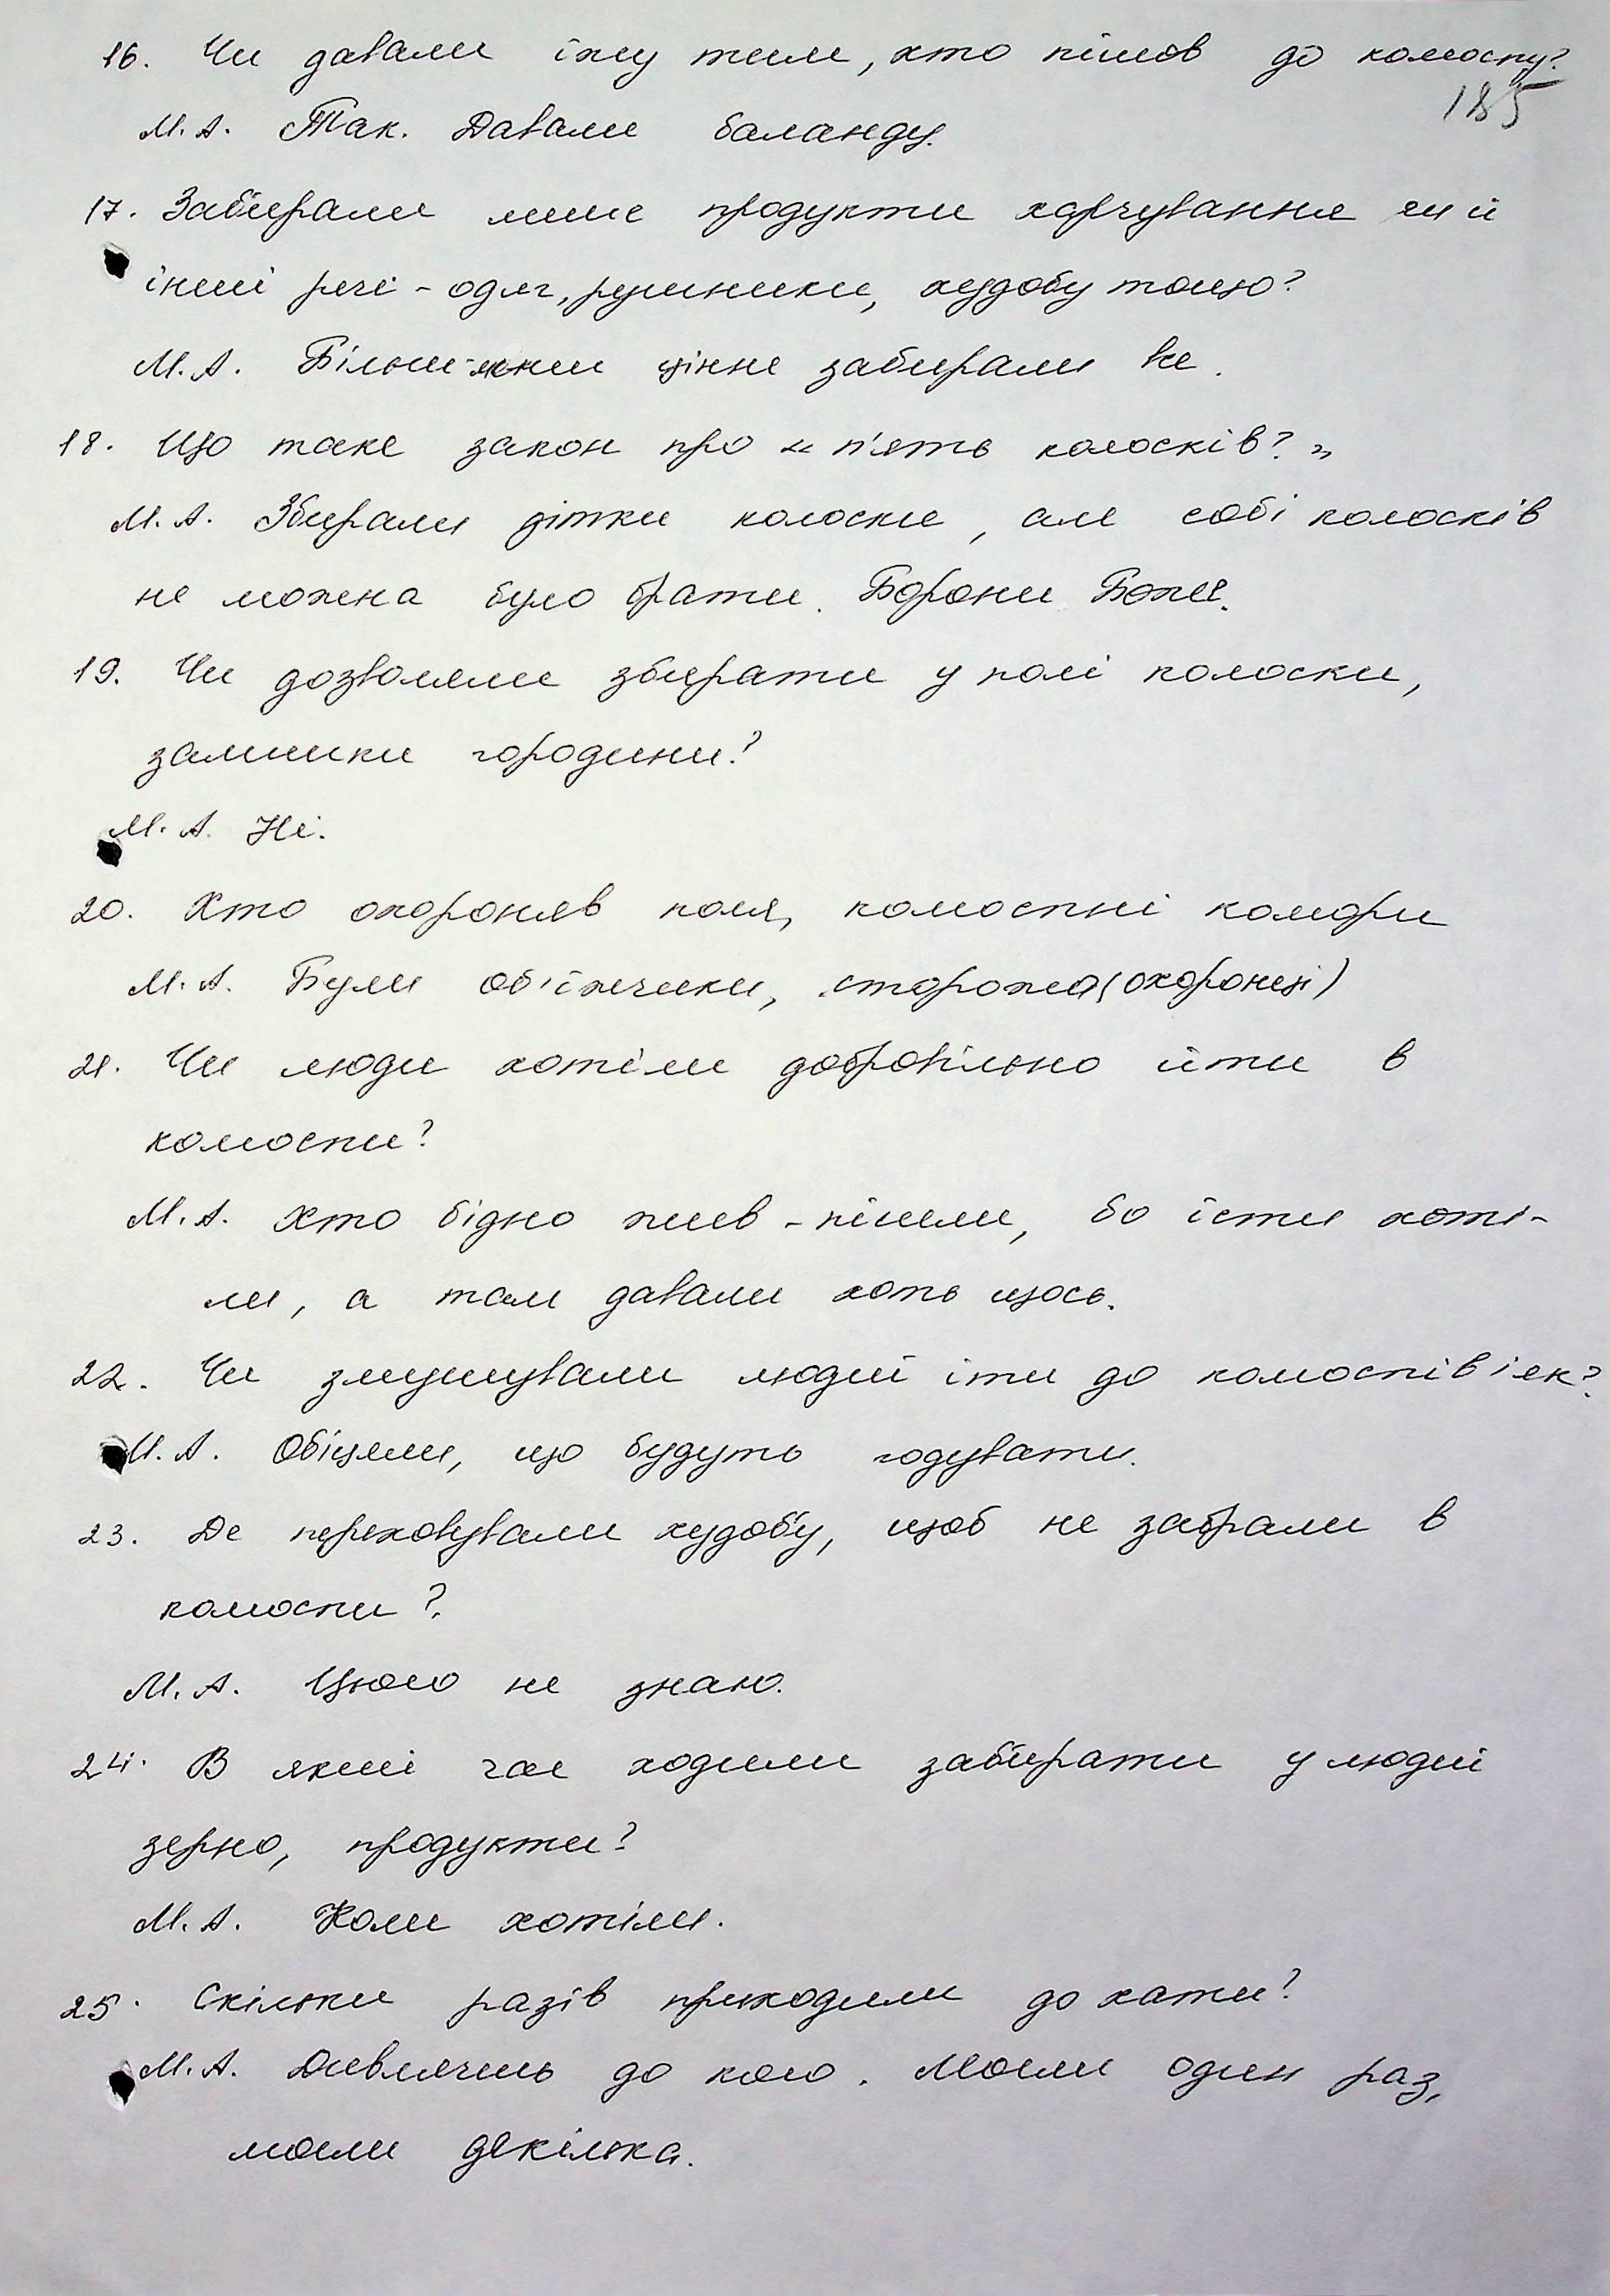 16. Чи давали їжу тим, хто пішов до колгоспу?
185
М.А. Так. Давали баланду.
17. Забирали лише продукти харчування чи й
інші речі - одяг, рушники, худобу тощо?
М.А. Більш-менш цінне забирали все.
18. Що таке закон про «п'ять колосків?»
М.А. Збирали дітки колоски, але собі колосків
не можна було брати. Борони Боже.
19. Чи дозволяли збирати у полі колоски,
залишки городини?
М.А. Ні.
20. Хто охороняв поля, колгоспні комори
М.А. Були об'їжчики, сторожа (охоронці)
21. Чи люди хотіли добровільно йти в
колгоспи?
М.А. Хто бідно жив - пішли, бо їсти хоті-
ли, а там давали хоть щось.
22. Чи змушували людей іти до колгоспів і як?
М.А. Обіцяли, що будуть годувати.
23. Де переховували худобу, щоб не забрали в
колгоспи?
М.А. Цього не знаю.
24. В який час ходили забирати у людей
зерно, продукти?
М.А. Коли хотіли.
25. Скільки разів приходили до хати?
М.А. Дивлячись до кого. Могли один раз,
могли декілька.